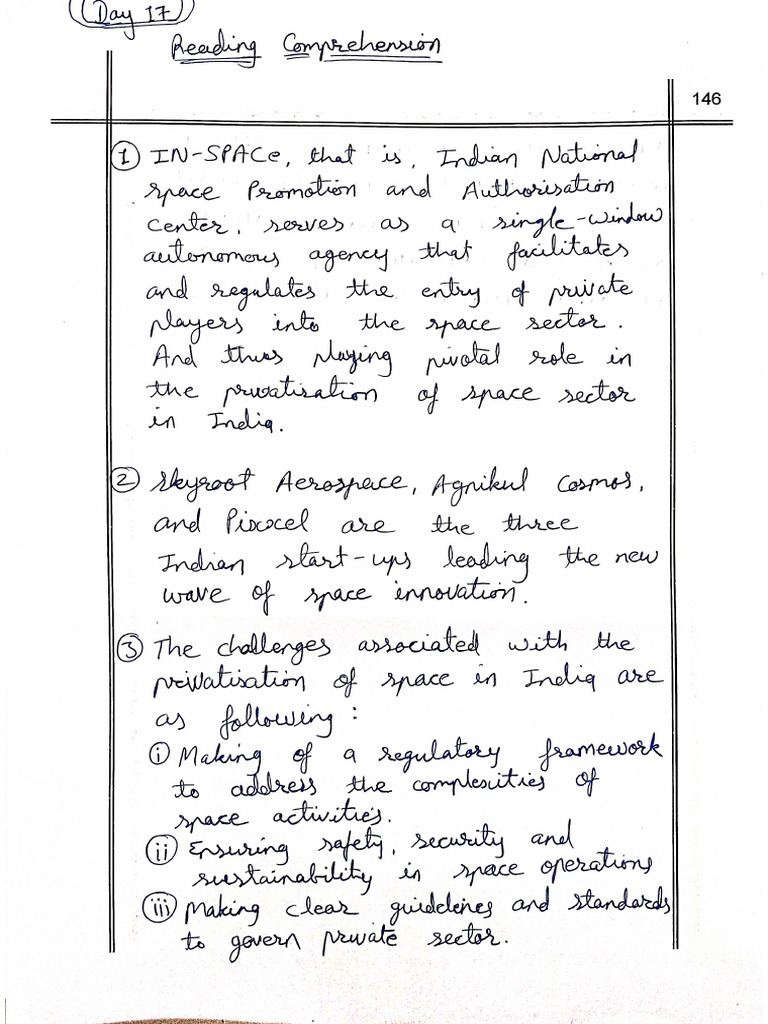 Day 17
Reading Comprehension
146
① IN-SPACe, that is, Indian National
space Promotion and Authorisation
Center, serves as a single-window
autonomous agency that facilitates
and regulates the entry of private
players into the space sector.
And thus playing pivotal role in
the privatisation of space sector
in India.
② Skyroot Aerospace, Agnikul Cosmos,
and Pixxel are the three
Indian start-ups leading the new
wave of space innovation.
③ The challenges associated with the
privatisation of space in India are
as following:
ⓘ Making of a regulatory framework
to address the complexities of
space activities.
ⓘⓘ Ensuring safety, security and
sustainability in space operations
ⓘⓘⓘ Making clear guidelines and standards
to govern private sector.